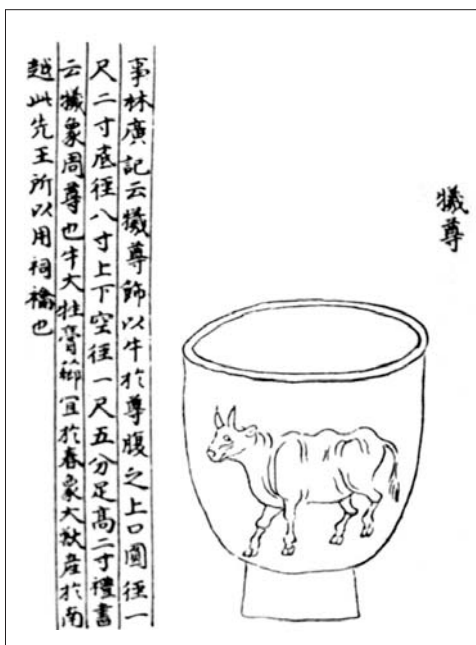 犧尊
事林廣記云犧尊飾以牛於尊腹之上口圓徑一
尺二寸底徑八寸上下空徑一尺五分足高二寸禮書
云犧象周尊也牛大牲膏薌宜於春象大獸產於南
越此先王所以用祠禴也